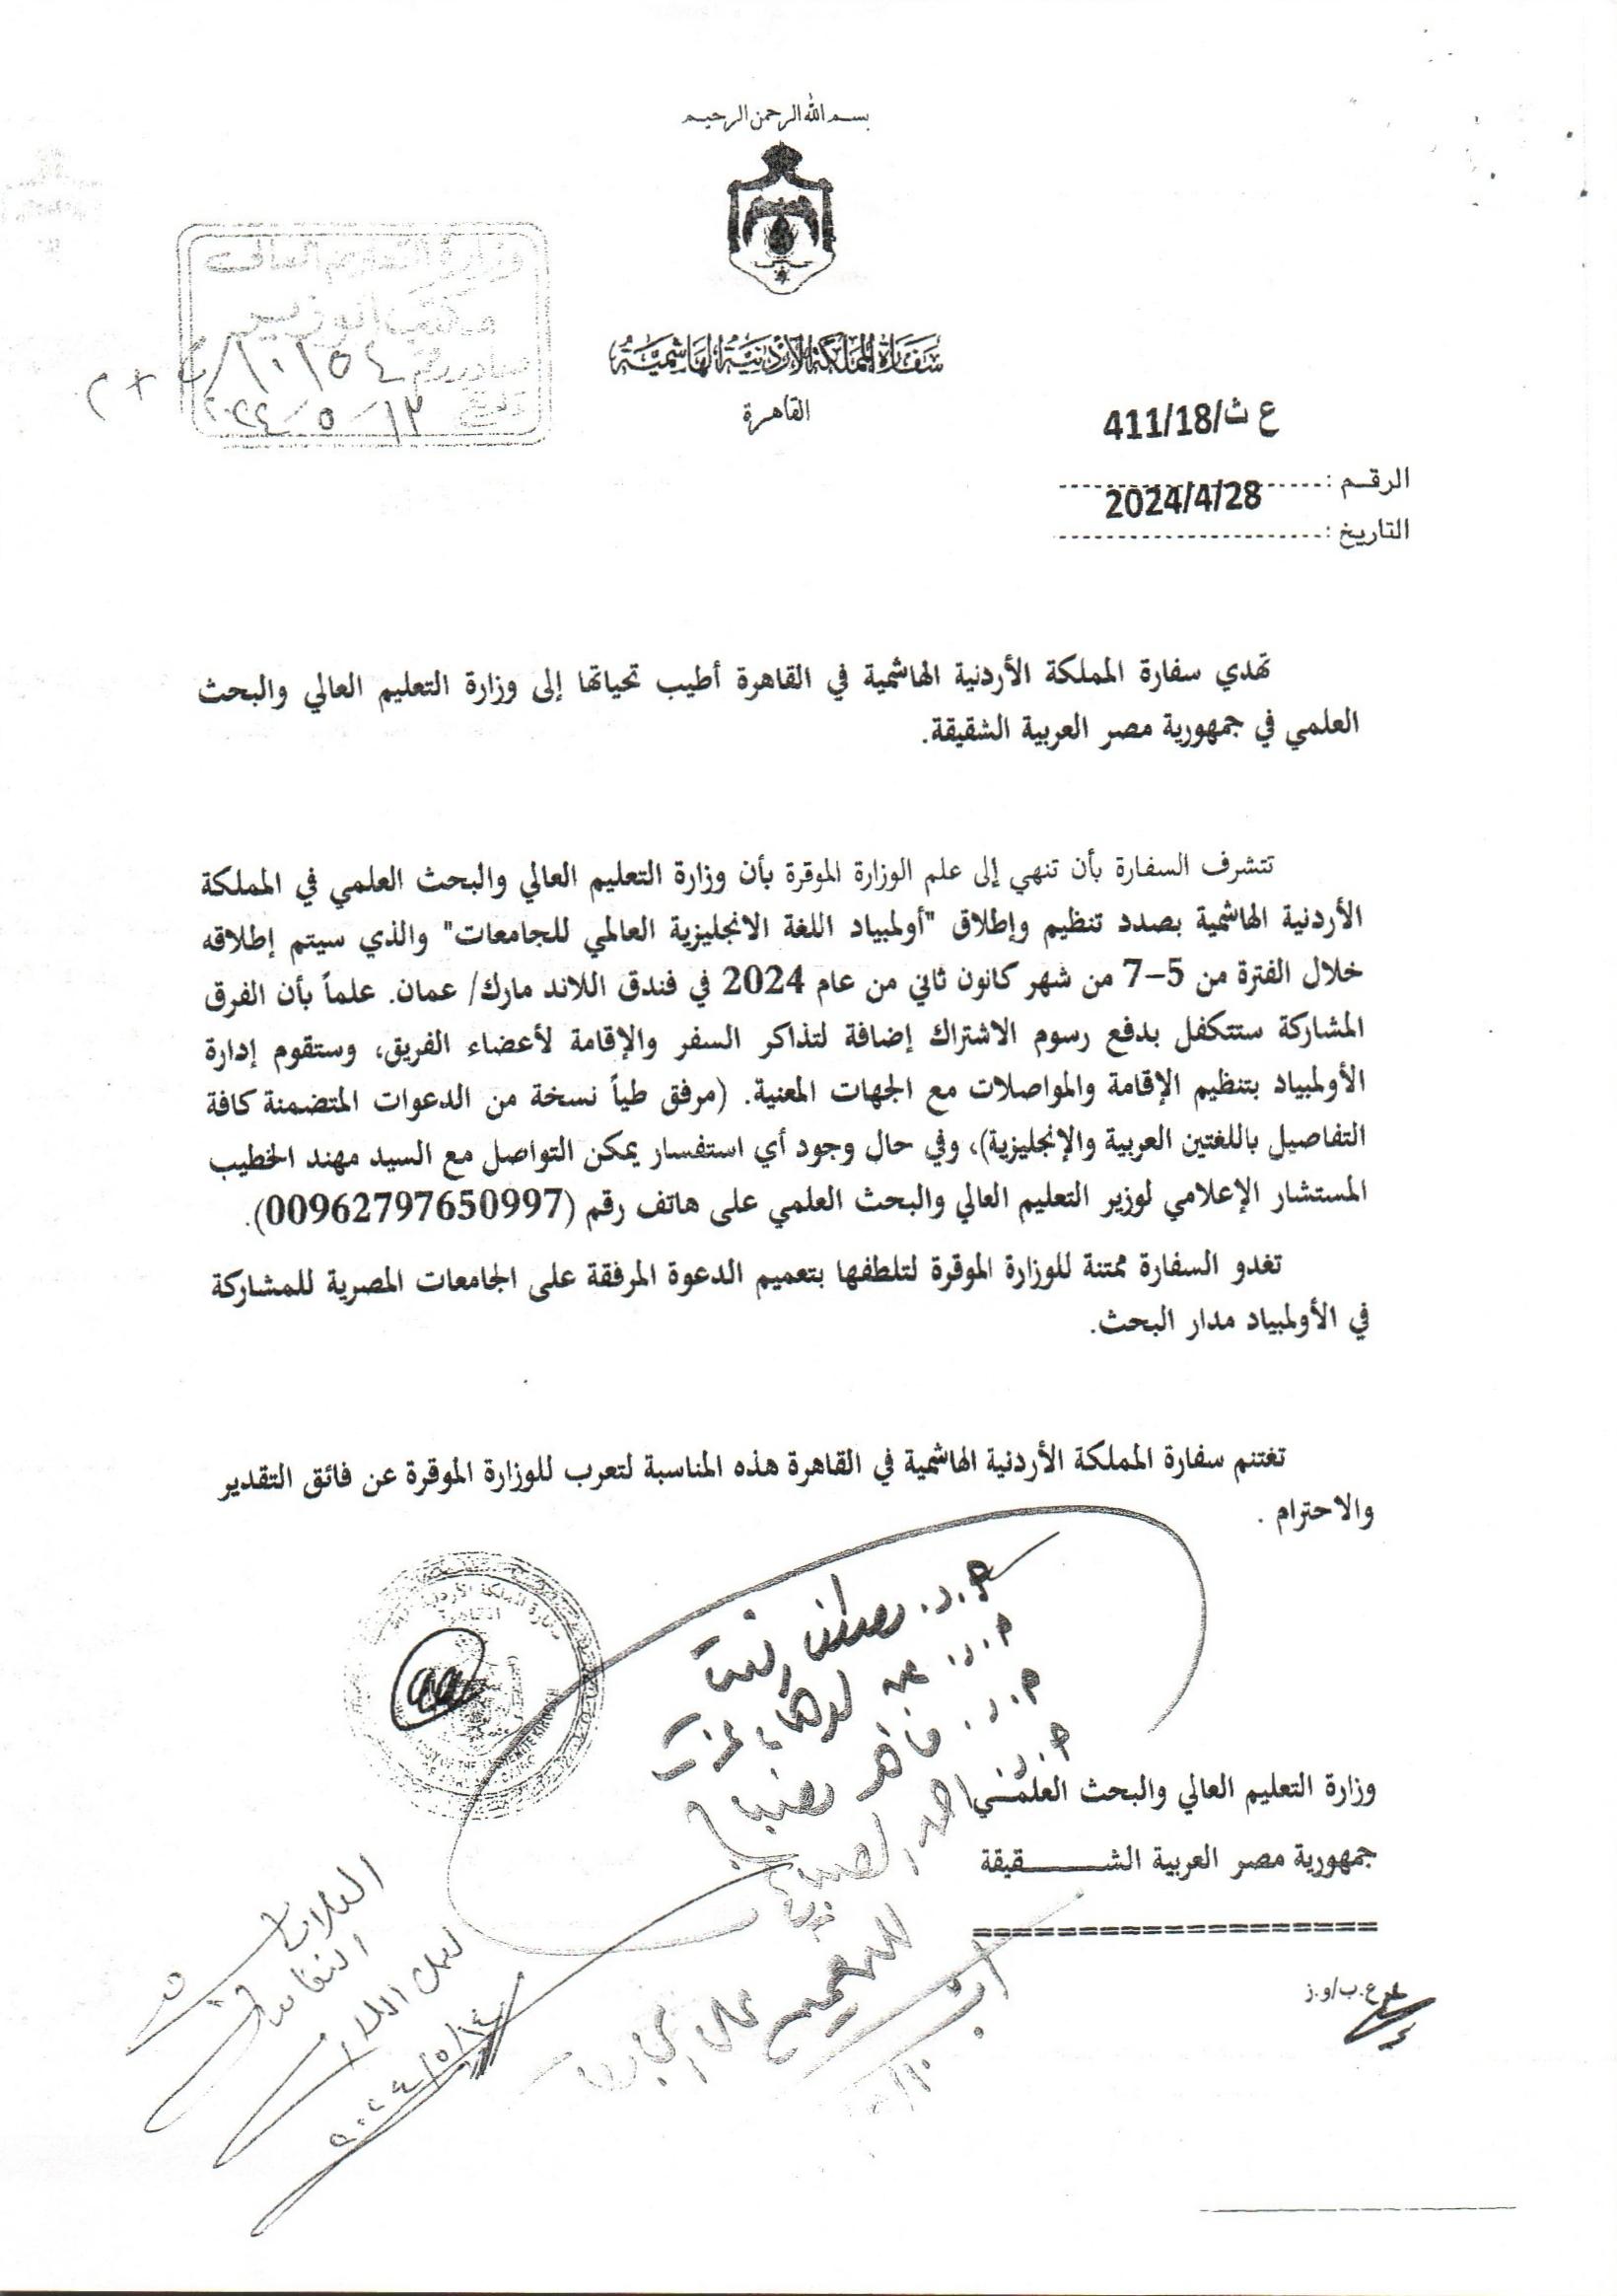 بسم الله الرحمن الرحيم
سفارة المملكة الأردنية الهاشمية
القاهرة
وزارة التعليم العالى
مكتب الوزير
صادر رقم ١٠١٥٤
تاريخ ١٢-٥-٢٠٢٤
ع ث/411/18
الرقم :
2024/4/28
التاريخ :
تهدي سفارة المملكة الأردنية الهاشمية في القاهرة أطيب تحياتها إلى وزارة التعليم العالي والبحث
العلمي في جمهورية مصر العربية الشقيقة.
تتشرف السفارة بأن تنهي إلى علم الوزارة الموقرة بأن وزارة التعليم العالي والبحث العلمي في المملكة
الأردنية الهاشمية بصدد تنظيم وإطلاق "أولمبياد اللغة الانجليزية العالمي للجامعات" والذي سيتم إطلاقه
خلال الفترة من 5–7 من شهر كانون ثاني من عام 2024 في فندق اللاند مارك/ عمان. علماً بأن الفرق
المشاركة ستتكفل بدفع رسوم الاشتراك إضافة لتذاكر السفر والإقامة لأعضاء الفريق، وستقوم إدارة
الأولمبياد بتنظيم الإقامة والمواصلات مع الجهات المعنية. (مرفق طياً نسخة من الدعوات المتضمنة كافة
التفاصيل باللغتين العربية والإنجليزية)، وفي حال وجود أي استفسار يمكن التواصل مع السيد مهند الخطيب
المستشار الإعلامي لوزير التعليم العالي والبحث العلمي على هاتف رقم (00962797650997).
تغدو السفارة ممتنة للوزارة الموقرة لتلطفها بتعميم الدعوة المرفقة على الجامعات المصرية للمشاركة
في الأولمبياد مدار البحث.
تغتنم سفارة المملكة الأردنية الهاشمية في القاهرة هذه المناسبة لتعرب للوزارة الموقرة عن فائق التقدير
والاحترام .
أ.د. مصطفى رفعت
أ.د. ماهر مصباح
وزارة التعليم العالي والبحث العلمـي
جمهورية مصر العربية الشـــــقيقة
====================
ع.ب/و.ز
العلاقات
الثقافية
لعمل اللازم
٢٠٢٤/٥/١٤